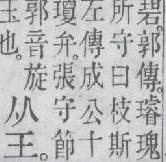 碧。郭傳。璿瑰
所守曰枝斯
左傳成公十
瓊弁。張守節
郭音旋
玉也。
从王。